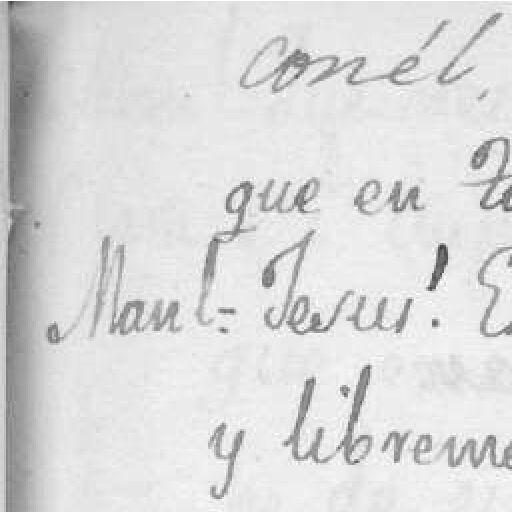 con él,
que en
Manl.- Jesus!
y libreme